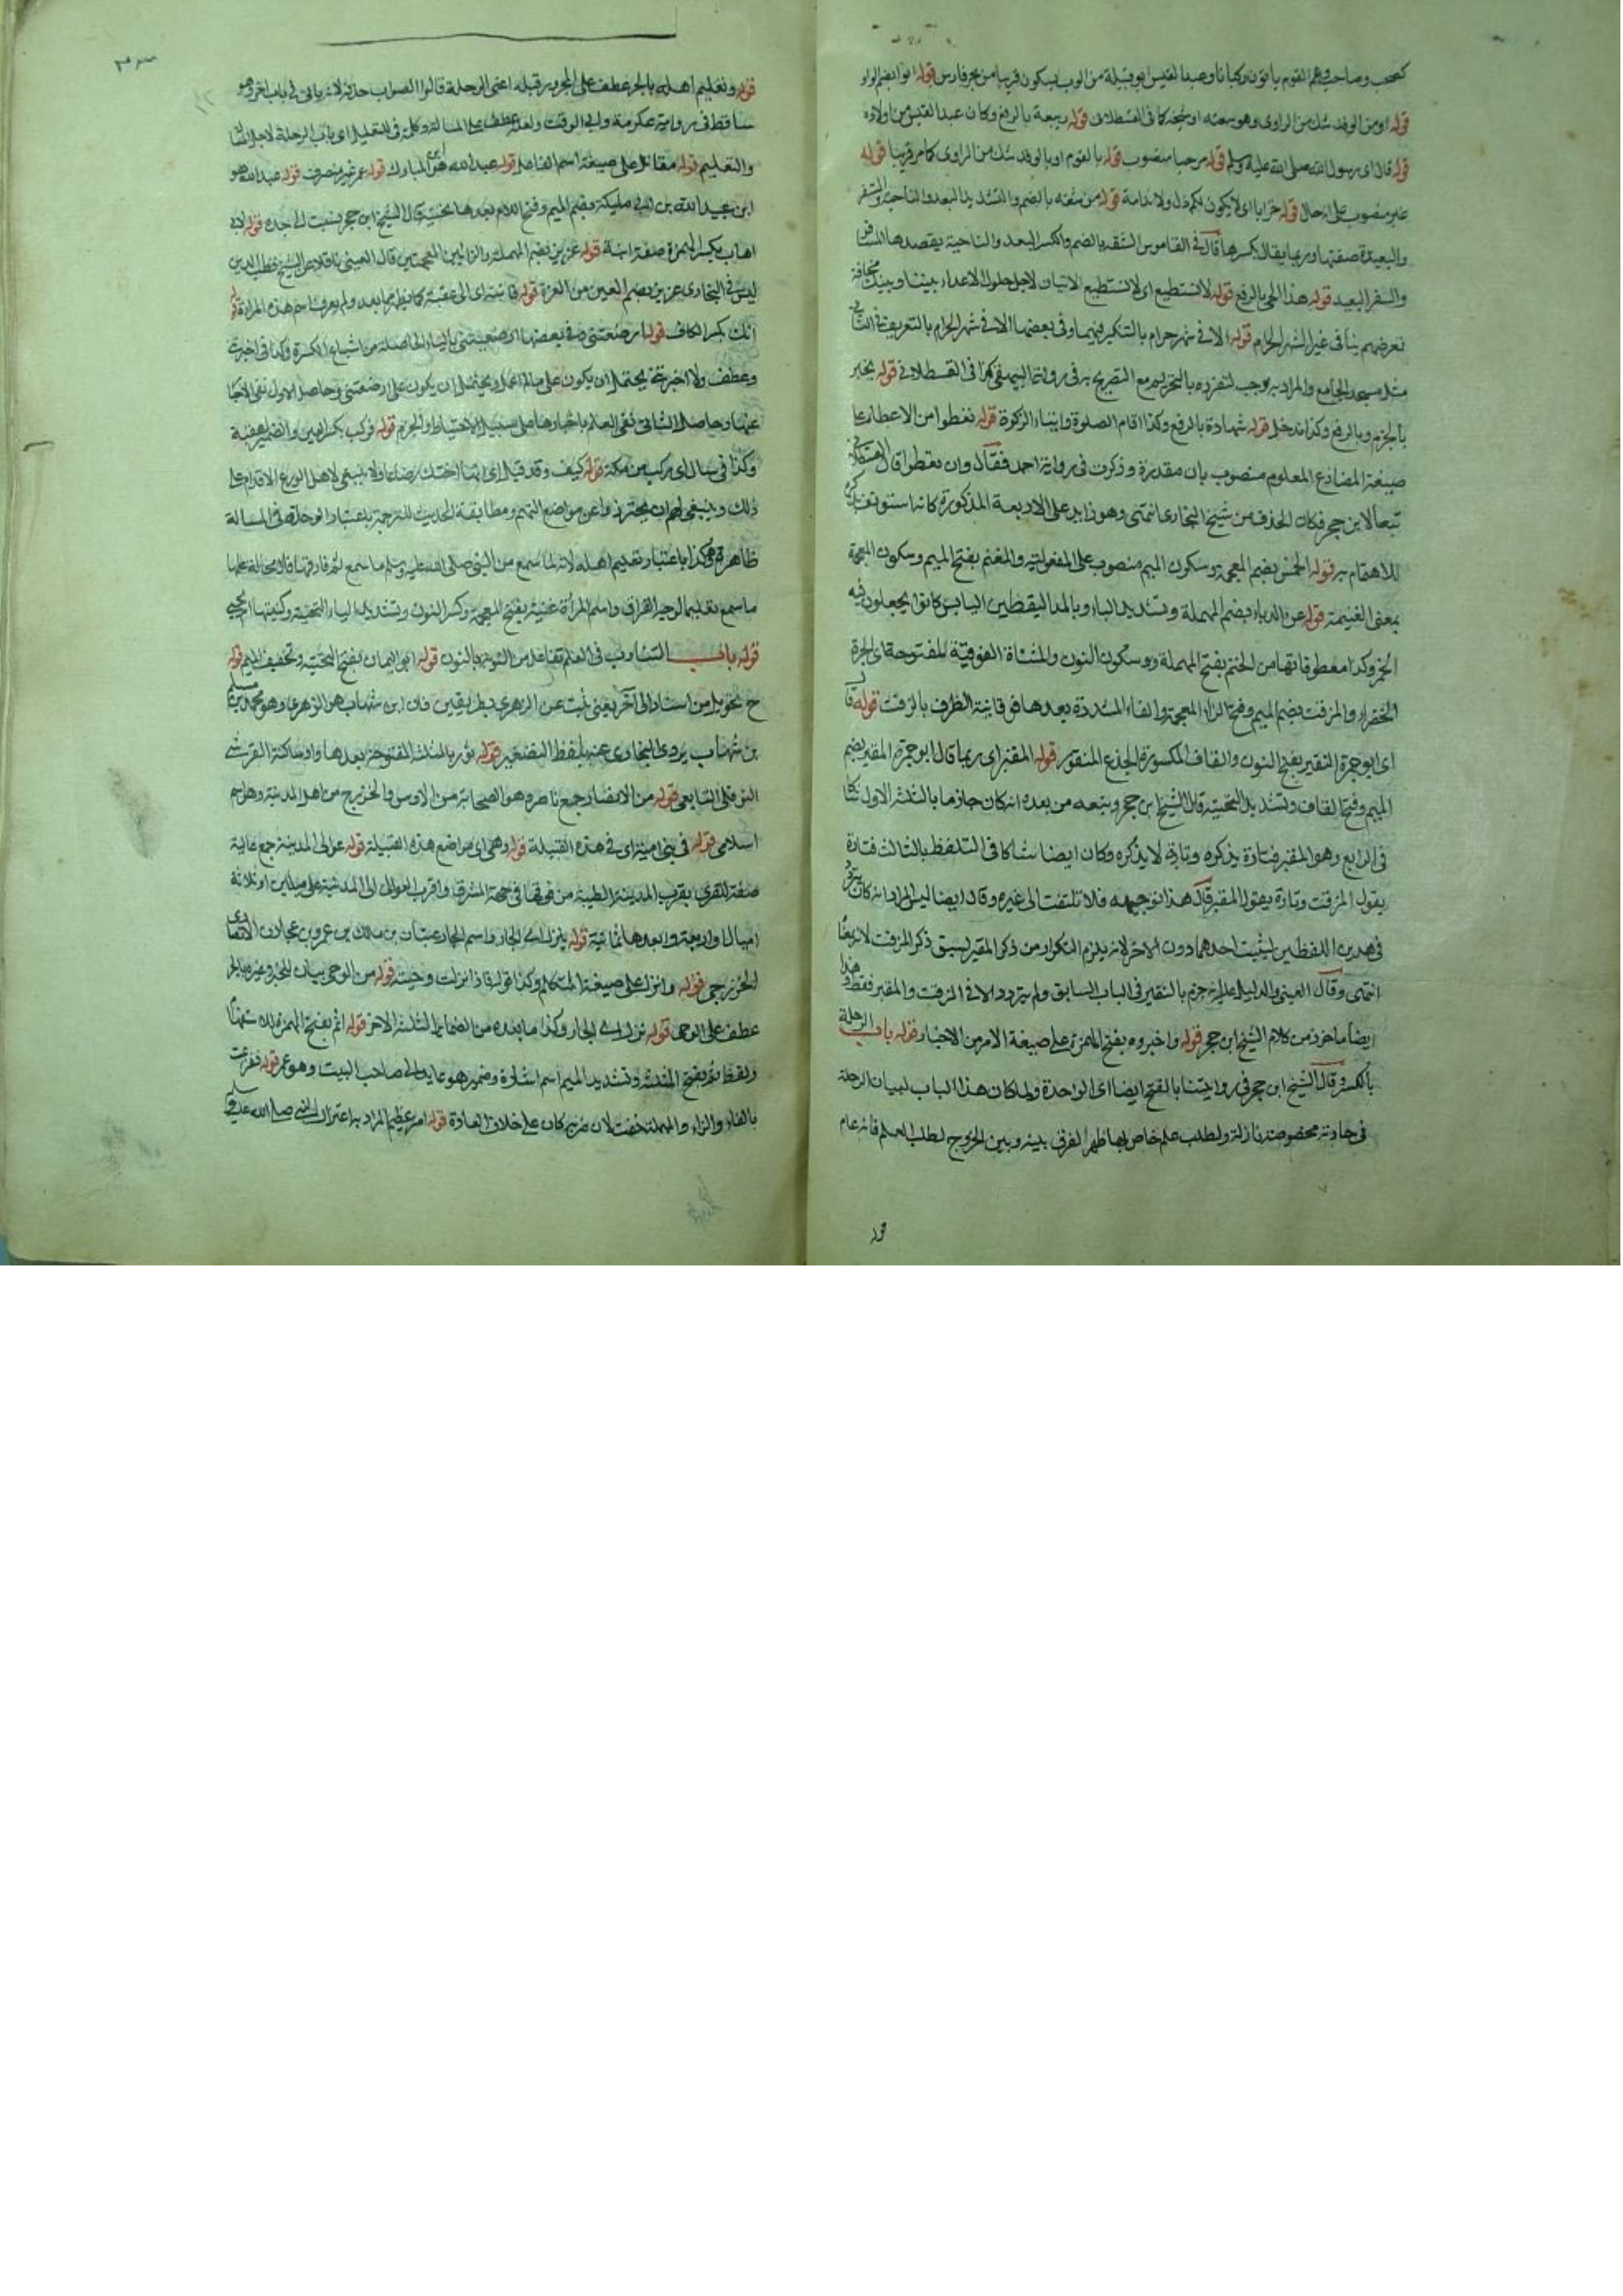 كصحب وصاحب وهم القوم ياتون ركبانا وعبد القيس ابو قبيلة من العرب يسكون قريبا من بحر فارس قوله او ابضم الواو
قوله او من الوفد شك من الراوى وهو شعبة او شيخه كما فى القسطلانى قوله ربيعة بالرفع وكان عبد القيس من اولاده
قوله قال اى رسول الله صلى الله عليه وسلم قوله مرحبا منصوب قوله بالقوم او بالوفد شك من الراوى كما مر قريبا قوله
غير منصوب على الحال قوله خزايا اى لا يكون لكم ذل ولا ندامة قوله من شقة بالضم والتشديد البعد والناحية والسفر
والبعيدة صفتها وربما يقال بكسرها قال فى القاموس الشقة بالضم والكسر البعد والناحية يقصدها المسافر
والسفر البعيد قوله هذا الحى بالرفع قوله لا نستطيع اى لا نستطيع الاتيان لاجل حلول الاعداء بيننا وبينك مخافة
تعرضهم بنا فى غير الشهر الحرام قوله الا فى شهر حرام بالتنكير فيهما وفى بعضها الا فى شهر الحرام بالتعريف فى الثانى
مثل مسجد الجامع والمراد به رجب لتفرده بالتحريم مع التصريح به فى رواية البيهقى كما فى القسطلانى قوله نخبر
بالجزم وبالرفع وكذا ندخل قوله شهادة بالرفع وكذا اقام الصلوة وايتاء الزكوة قوله تعطوا من الاعطاء على
صيغة المضارع المعلوم منصوب بان مقدرة وذكرت فى رواية احمد فقال وان تعطوا قال القسطلانى
تبعا لابن حجر فكان الحذف من شيخ البخارى انتهى وهو زايد على الاربعة المذكورة كانه استوثق ذكره
للاهتمام به قوله الخمس بضم المعجمة وسكون الميم منصوب على المفعولية والمغنم بفتح الميم وسكون المعجمة
بمعنى الغنيمة قوله عن الدباء بضم المهملة وتشديد الباء وبالمد اليقطين اليابس كانوا يجعلون فيه
الخمر وكذا معطوفاتها من الحنتم بفتح المهملة وسكون النون والمثناة الفوقية المفتوحة اى الجرة
الخضراء والمزفت بضم الميم وفتح الزاء المعجمة والفاء المشددة بعدها فوقانية الظرف بالزفت قوله قا
اى ابو جمرة النقير بفتح النون والقاف المكسورة الجذع المنقور قوله المقير اى ربما قال ابو جمرة المقير بضم
الميم وفتح القاف وتشديد التحتية قال الشيخ ابن حجر وتبعه من بعده انه كان جازما بالثلثة الاول شاكا
فى الرابع وهو المقير فتارة يذكره وتارة لا يذكره وكان ايضا شاكا فى التلفظ بالثالث فتارة
يقول المزفت وتارة يقول المقير قال هذا توجيهه فلا تلتفت الى غيره وقال ايضا ليس المراد انه كان يتردد
فى هذين اللفظين ليثبت احدهما دون الاخر لانه يلزم التكرار من ذكر المقير لسبق ذكر المزفت لانه بمعناه
انتهى وقال العينى والدليل عليه انه جزم بالنقير فى الباب السابق ولم يتردد الا فى المزفت والمقير فقط وهذا
ايضا ماخوذ من كلام الشيخ ابن حجر قوله واخبروه بفتح الهمزة على صيغة الامر من الاخبار قوله باب الرحلة
بالكسر وقال الشيخ ابن حجر فى روايتنا بالفتح ايضا اى الواحدة ولما كان هذا الباب لبيان الرحلة
فى حادثة مخصوصة نازلة ولطلب علم خاص بها ظهر الفرق بينه وبين الخروج لطلب العلم فانه عام
قوله
قوله وتعليم اهله بالجر عطف على المجرور قبله اعنى الرحلة قالوا الصواب حذفه لانه ياتى فى باب اخر وهو
ساقط فى رواية كريمة وابى الوقت ولعله عطف على المسالة وكلمة فى للتعليل اى باب الرحلة لاجل المسالة
والتعليم قوله مقاتل على صيغة اسم الفاعل قوله عبد الله هو ابن المبارك قوله عمر غير منصرف قوله عبد الله هو
ابن عبيد الله بن ابى مليكة بضم الميم وفتح اللام بعدها تحتية قال الشيخ ابن حجر نسب الى جده قوله لابى
اهاب بكسر الهمزة صفة ابنة قوله عزيز بضم المهملة والزايين المعجمتين قال العينى ناقلا عن الشيخ قطب الدين
ليس فى البخارى عزيز بضم العين من العزة قوله فاتته اى الى عقبة كما يظهر مما بعد ولم يعرف اسم هذه المراة قوله
انك بكسر الكاف قوله ارضعتنى وفى بعضها ارضعتينى بالياء الحاصلة من اشباع الكسرة وكذا فى اخبرت
وعطف ولا اخبرتنى يحتمل ان يكون على ما اعلم ويحتمل ان يكون على ارضعتنى وحاصل الاول نفى الاخبار
عنها وحاصل الثانى نفى العلم باخبارها على سبيل الاحتياط والجزم قوله فركب بكسر العين والضمير لعقبة
وكذا فى سال اى ركب من مكة قوله كيف وقد قيل اى انها اختك رضاعا ولا ينبغى لاهل الورع الاقدام على
ذلك وينبغى لهم ان يحترزوا عن مواضع التهم ومطابقة الحديث للترجمة باعتبار الرحلة فى المسالة
ظاهرة وكذا باعتبار تعليم اهله لانه لما سمع من النبى صلى الله عليه وسلم ما سمع ثم فارقها
ما سمع تعليما لوجه الفراق واسم المرأة غنية بفتح المعجمة وكسر النون وتشديد الياء التحتية وكنيتها ام يحيى
قوله باب التناوب فى العلم تفاعل من النوبة بالنون قوله ابو اليمان بفتح التحتية وتخفيف الميم قوله
ح تحويل من اسناد الى آخر يعنى ثبت عن الزهرى بطريقين فان ابن شهاب هو الزهرى وهو محمد بن مسلم
بن شهاب يروى البخارى عنه بلفظ التصغير قوله ثور بالمثلثة المفتوحة بعدها واو ساكنة القرشى
النوفلى التابعى قوله من الانصار جمع ناصر وهو الصحابة من الاوس والخزرج من اهل المدينة وهو اسم
اسلامى قوله فى بنى امية اى فى هذه القبيلة قوله وهى اى مواضع هذه القبيلة قوله عوالى المدينة جمع عالية
صفة للقرى بقرب المدينة الطيبة من فوقها فى جهة الشرق واقرب العوالى الى المدينة على ميلين او ثلاثة
اميال او اربعة وابعدها ثمانية قوله ينزل اى الجار واسم الجار عتبان بن مالك بن عمرو بن عجلان الانصارى
الخزرجى قوله وانزل على صيغة المتكلم وكذا قوله فاذا نزلت وجئته قوله من الوحى بيان للخبر وغيره بالجر
عطف على الوحى قوله نزل اى الجار وكذا ما بعده من الضمائر الثلثة الاخر قوله اثم بفتح الهمزة للاستفهام
ولفظ ثم بفتح المثلثة وتشديد الميم اسم اشارة وضمير هو عايد الى صاحب البيت وهو عمر قوله ففزعت
بالفاء والزاء والمهملة خفت لان ضربه كان على خلاف العادة قوله امر عظيم المراد به اعتزال النبى صلى الله عليه وسلم